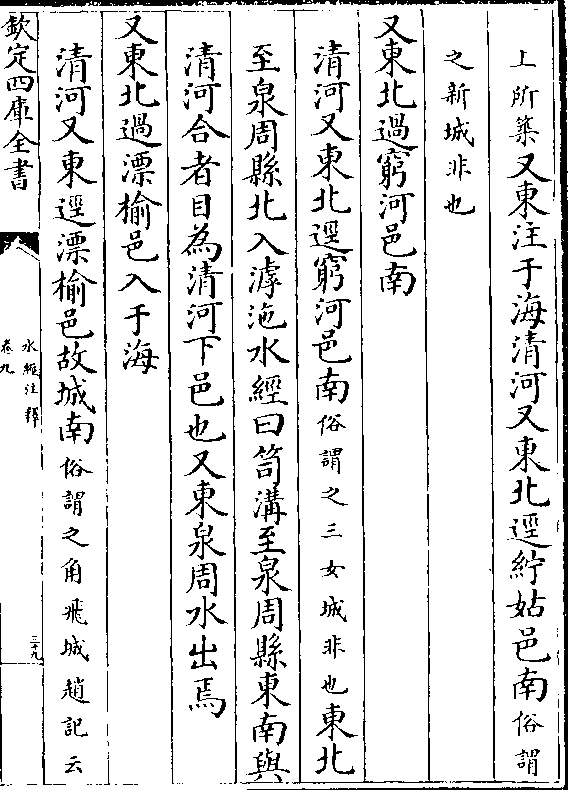 上所築又東注于海清河又東北逕紵姑邑南俗謂
之新城非也
又東北過窮河邑南
清河又東北逕窮河邑南俗謂之三女城非也東北
至泉周縣北入滹沲水經曰笥溝至泉周縣東南與
清河合者目為清河下邑也又東泉周水出焉
又東北過漂榆邑入于海
清河又東逕漂榆邑故城南俗謂之角飛城趙記云
欽定四庫全書
水經注釋
卷九
三十九